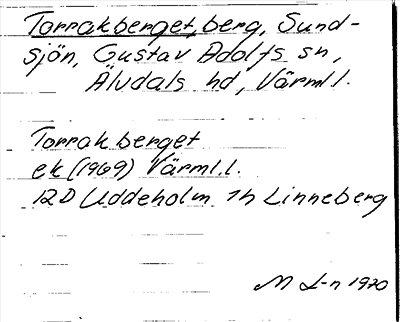 Torrakberget, berg, Sund-
sjön, Gustav Adolfs sn,
Älvdals hd, Värml.l.
Torrakberget
ek (1969) Värml.l.
12D Uddeholm 1h Linneberg
M L-n 1970